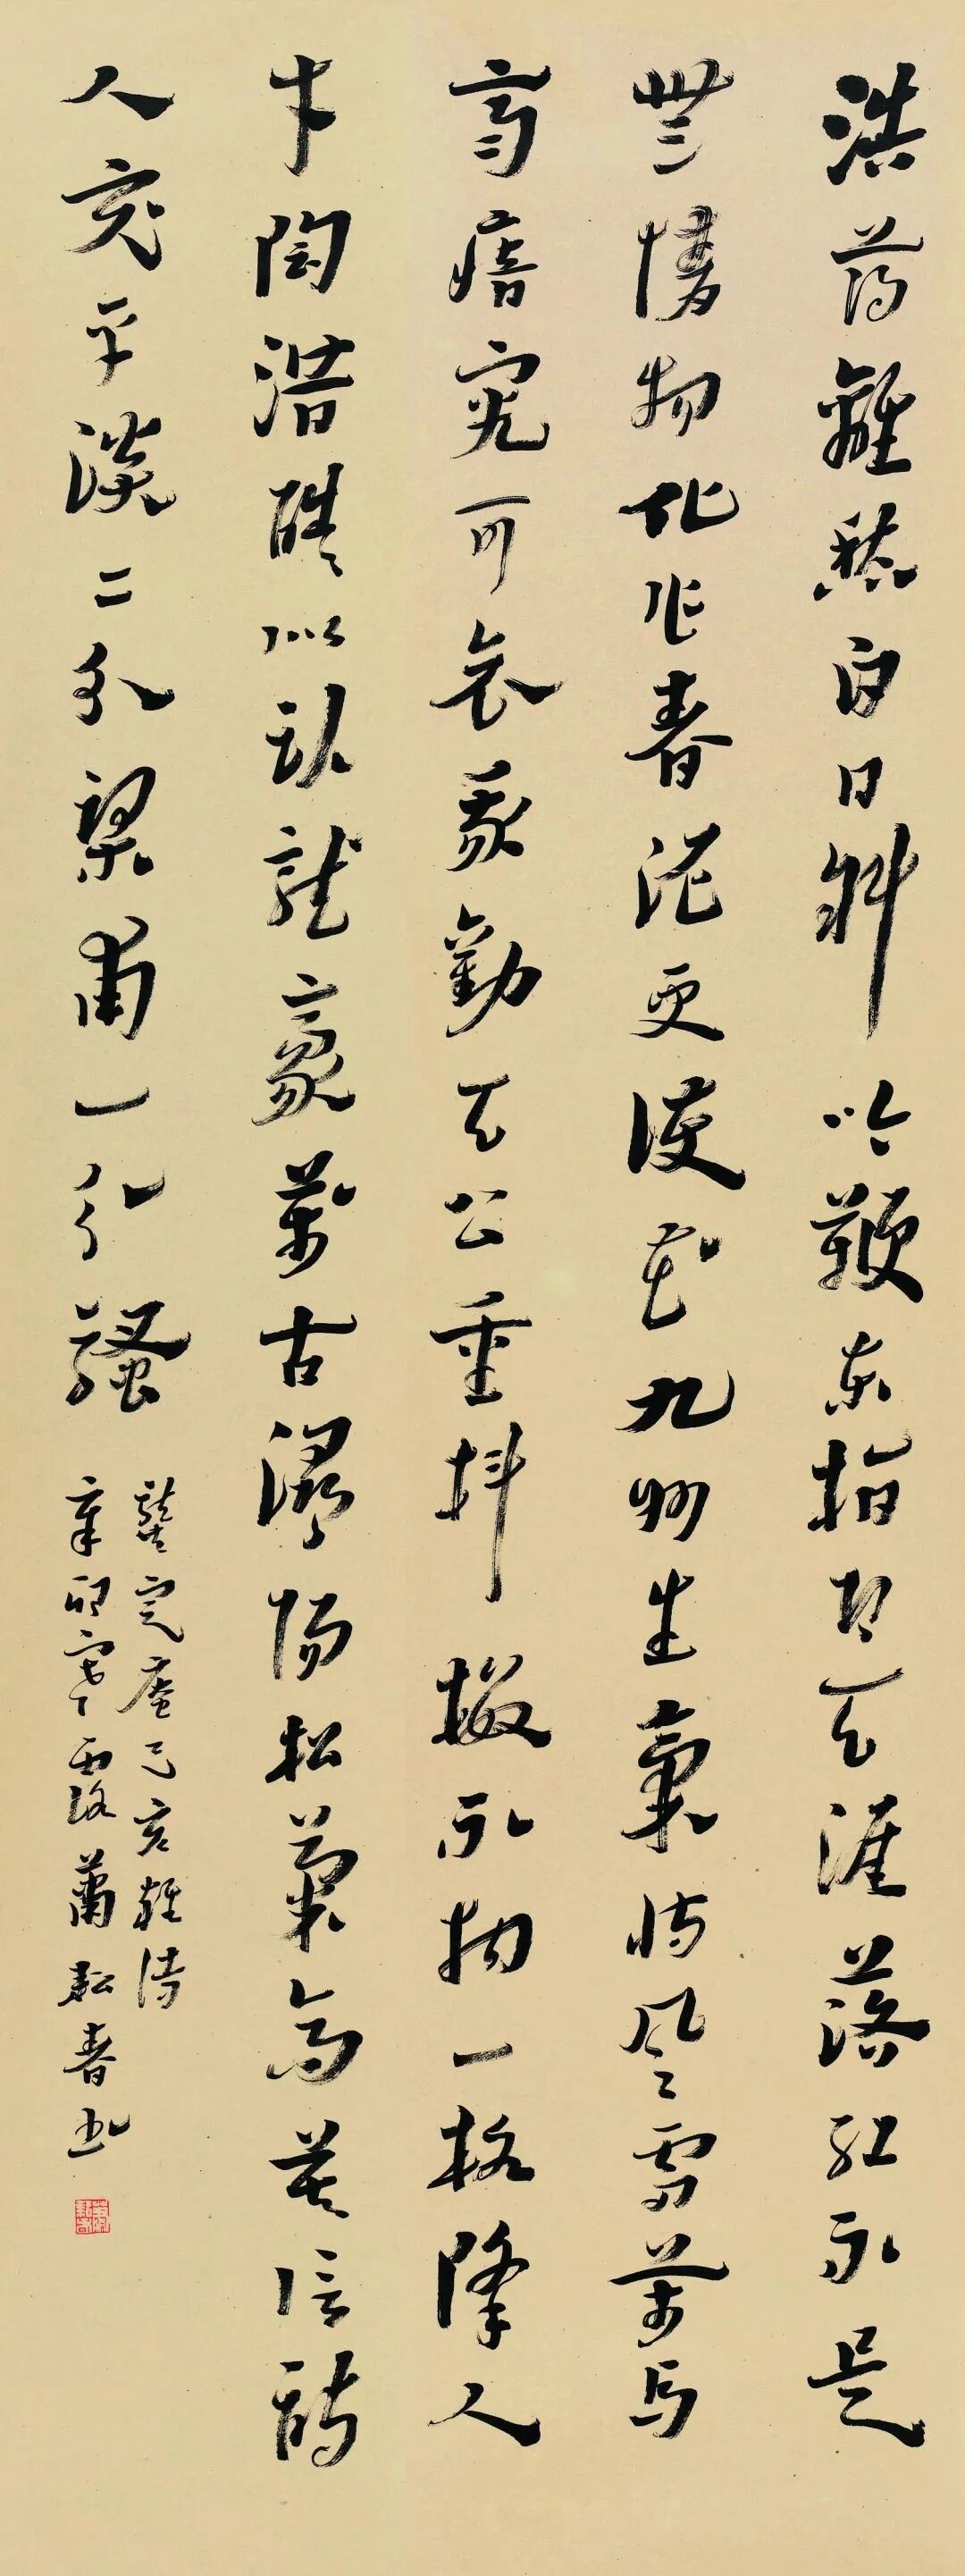 浩荡離愁白日斜吟鞭东指即天涯落红不是
無情物化作春泥更護花九州生氣恃风雷萬马
齊瘖究可哀我勸天公重抖擞不拘一格降人
才陶潜酷似卧龍豪萬古潯陽松菊高莫信詩
人竟平淡二分梁甫一分騷
龔定庵己亥雜诗
辛卯寒露蕭耘春书